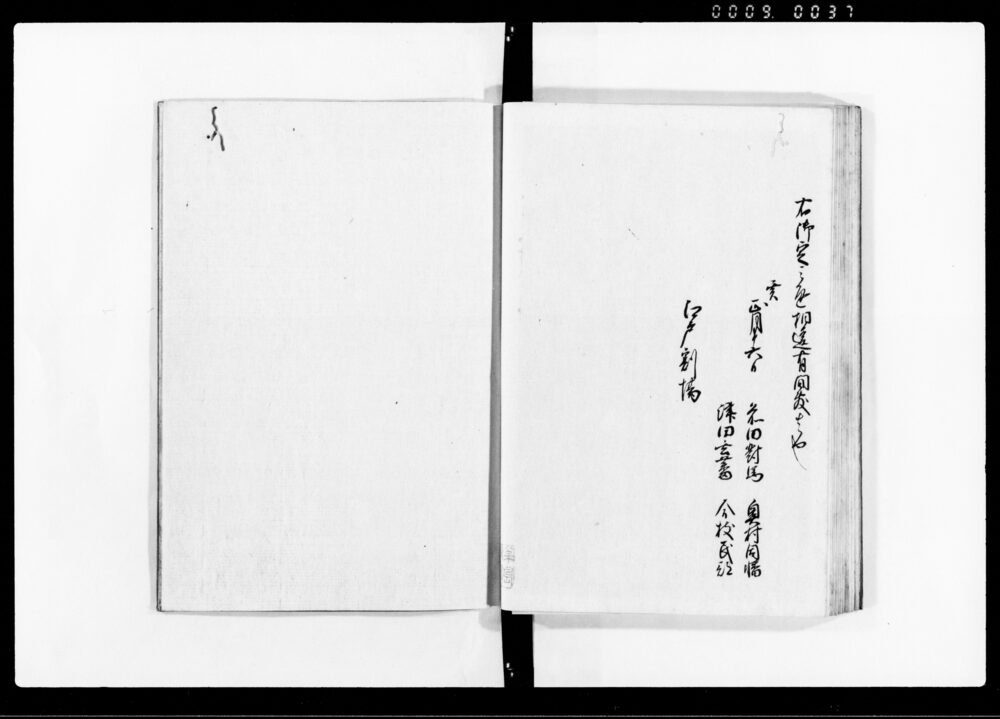 0009 0037
右御定之通相違有間敷者也
寅
正月十六日
前田對馬 奥村因幡
津田玄蕃 今枝民部
江戸割場